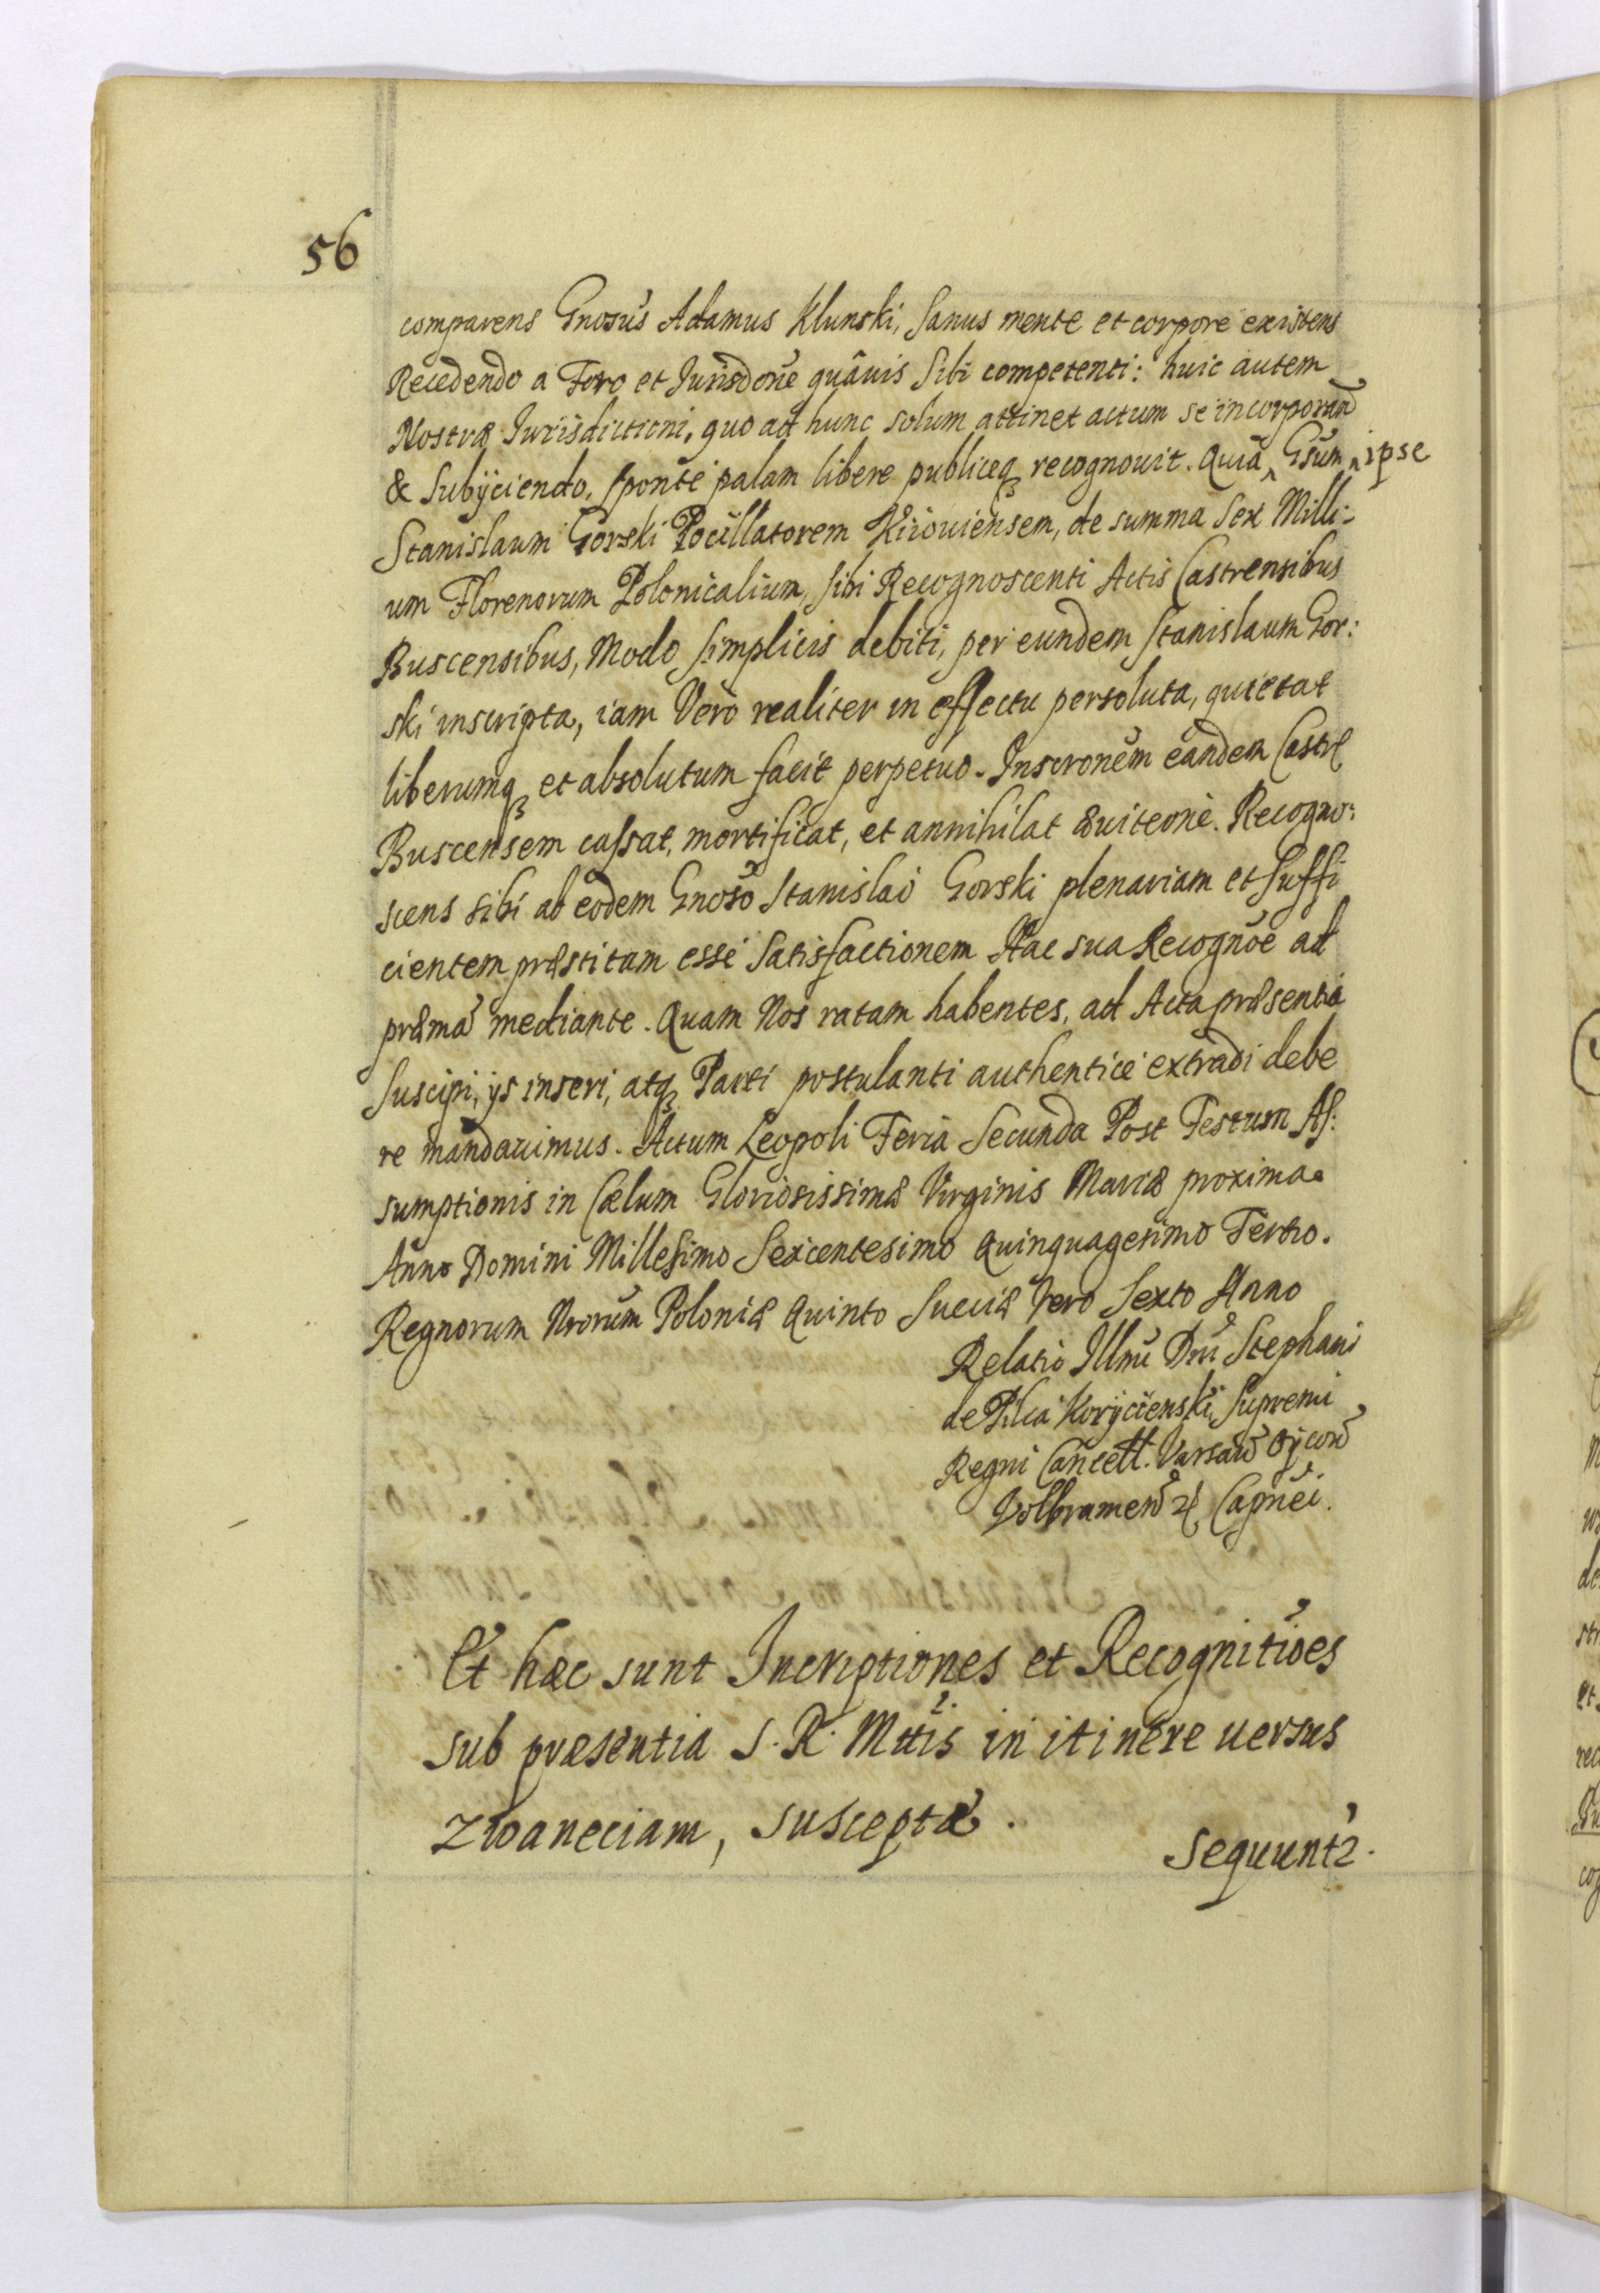 56
comparens Gnosus Adamus Klunski, Sanus mente et corpore existens
Recedendo a Foro et Jurisdone quâuis Sibi competenti: huic autem
Nostræ Jurisdictioni, quo ad hunc solum attinet actum se incorporand
& Subÿciendo, sponte palam libere publiceq recognouit. Quia ^ Gsum ^ ipse
Stanislaum Gorski Pocillatorem Kiiouiensem, de summa Sex Milli:
um Florenorum Polonicalium, sibi Recognoscenti Actis Castrensibus
Buscensibus, Modo simplicis debiti, per eundem Stanislaum Gor:
ski inscripta, iam Vero realiter in effectu persoluta, quietat
liberumq et absolutum facit perpetuo. Inscronem eandem Castr
Buscensem cassat, mortificat, et annihilat euiterne. Recogno:
scens sibi ab eodem Gnoso Stanislao Gorski plenariam et suffi
cientem præstitam esse satisfactionem Hac sua Recognoe ad
præma mediante. Quam Nos ratam habentes, ad Acta præsentia
Suscipi, ijs inseri, atq Parti postulanti authentice extradi debe
re mandauimus. Actum Leopoli Feria Secunda Post Festum As:
sumptionis in Cælum Gloriosissimæ Virginis Mariæ proxima.
Anno Domini Millesimo Sexcentesimo Quinquagesimo Tertio.
Regnorum Nrorum Poloniæ Quinto Sueciæ Vero Sexto Anno
Relatio Illmi Dni Stephani
de Pilca Korÿcienski, Supremi
Regni Cancell. Varsaw Oÿcow
Volbramen Capnei.
Et hæc sunt Incriptiones et Recognitioes
sub præsentia S. R. Mttis in itinere uersus
Zwaneciam, susceptæ.
Sequuntr.